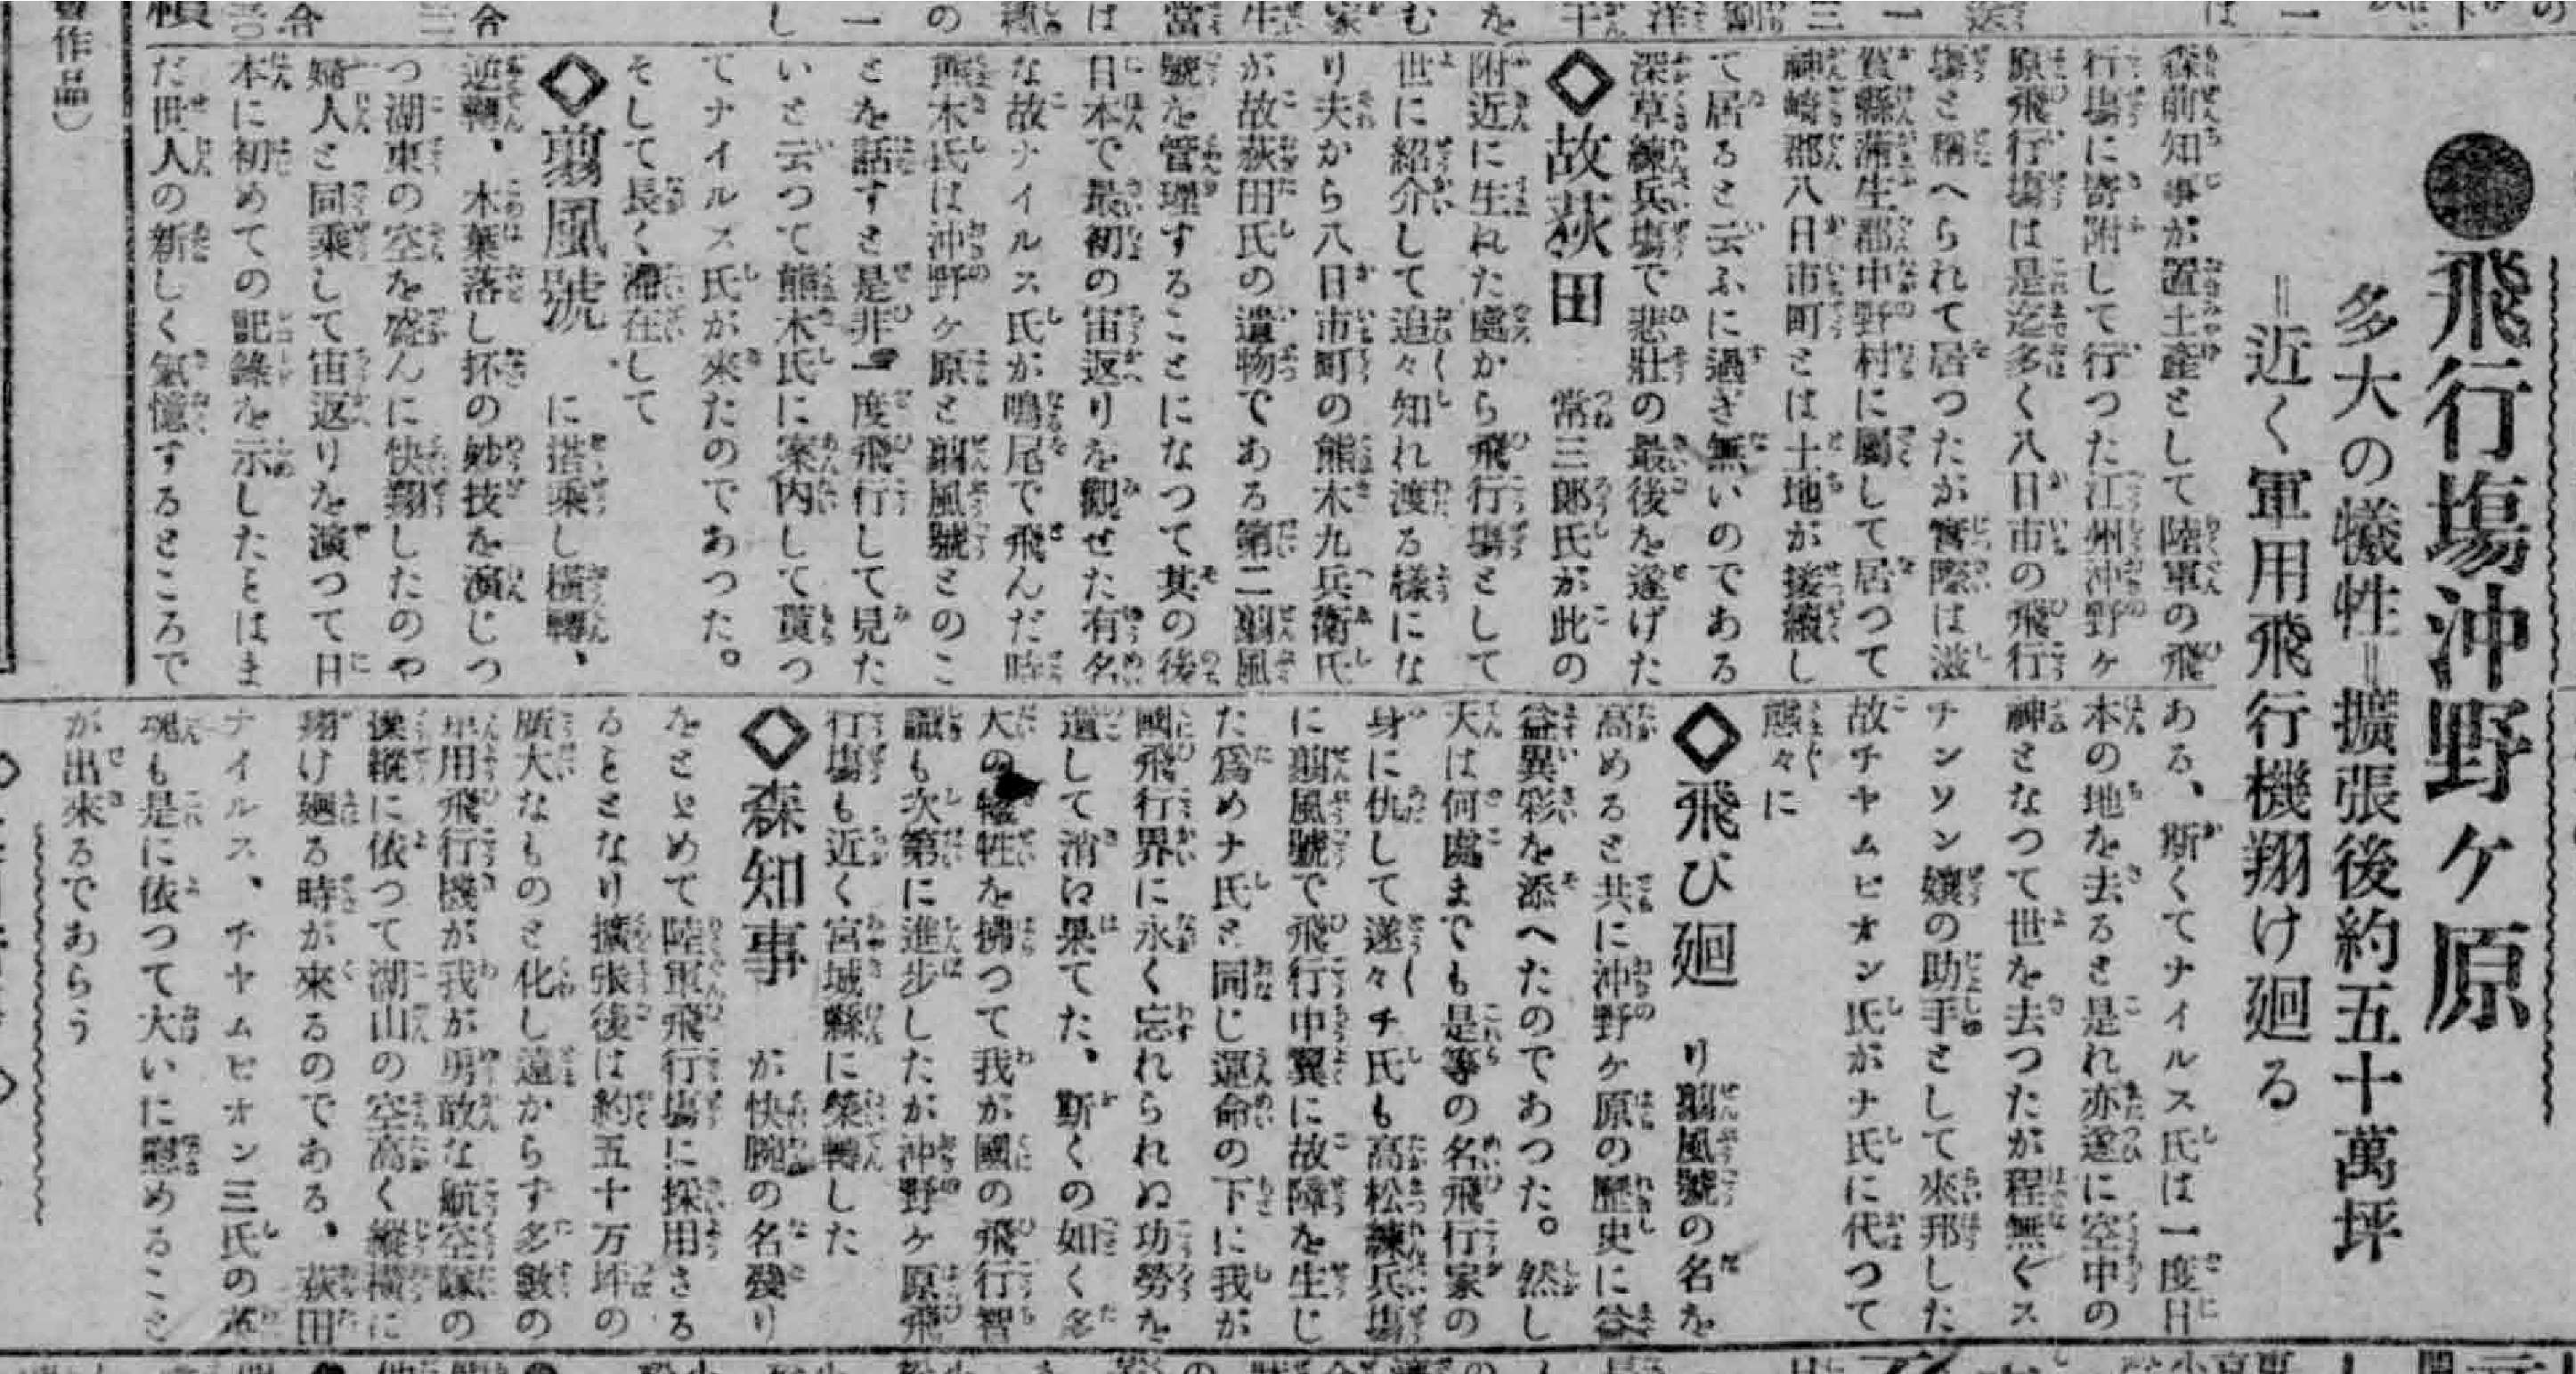 ●飛行場沖野ケ原
多大の犠牲=擴張後約五十萬坪
=近く軍用飛行機翔け廻る
森前知事が置土產として陸軍の飛
行塲に寄附して行つた江州沖野ヶ
原飛行塲は是迄多く八日市の飛行
塲と稱へられて居つたが實際は滋
賀縣蒲生郡中野村に屬して居つて
神崎郡八日市町とは土地が接續し
て居ると云ふに過ぎ無いのである
深草練兵塲で悲壯の最後を遂げた
◇故荻田 常三郎氏が此の
附近に生れた處から飛行塲として
世に紹介して追々知れ渡る樣にな
り夫から八日市町の熊木九兵衛氏
が故荻田氏の遺物である第二翦風
號を管理することになつて其の後
日本で最初の宙返りを觀せた有名
な故ナイルス氏が鳴尾で飛んだ時
熊木氏は沖野ヶ原と翦風號とのこ
とを話すと是非一度飛行して見た
いと云つて熊木氏に案內して貰つ
てナイルス氏が來たのであつた。
そして長く滯在して
◇翦風號 に搭乘し橫轉、
逆轉、木葉落し抔の妙技を演じつ
つ湖東の空を盛んに快翔したのや
婦人と同乘して宙返りを演つて日
本に初めての記錄を示したとはま
だ世人の新しく氣憶するところで
ある、斯くてナイルス氏は一度日
本の地を去ると是れ亦遂に空中の
神となつて世を去つたが程無くス
チンソン孃の助手として來邦した
故チヤムピオン氏がナ氏に代つて
態々に
◇飛び廻 り翦風號の名を
高めると共に沖野ヶ原の歷史に益
益異彩を添へたのであつた。然し
天は何處までも是等の名飛行家の
身に仇して遂々チ氏も高松練兵塲
に翦風號で飛行中翼に故障を生じ
た爲めナ氏と同じ運命の下に我が
國飛行界に永く忘れられぬ功勞を
遺して消え果てた、斯くの如く多
大の犠牲を拂つて我が國の飛行智
識も次第に進步したが沖野ヶ原飛
行塲も近く宮城縣に榮轉した
◇森知事 が快腕の名殘り
をとゞめて陸軍飛行塲に採用さる
るとなり擴張後は約五十万坪の
廣大なものと化し遠からず多數の
軍用飛行機が我が勇敢な航空隊の
操縱に依つて湖山の空高く縱橫に
翔け廻る時が來るのである、荻田
ナイルス、チヤムピオン三氏の英
魂も是に依つて大いに慰めること
が出來るであらう
作品）